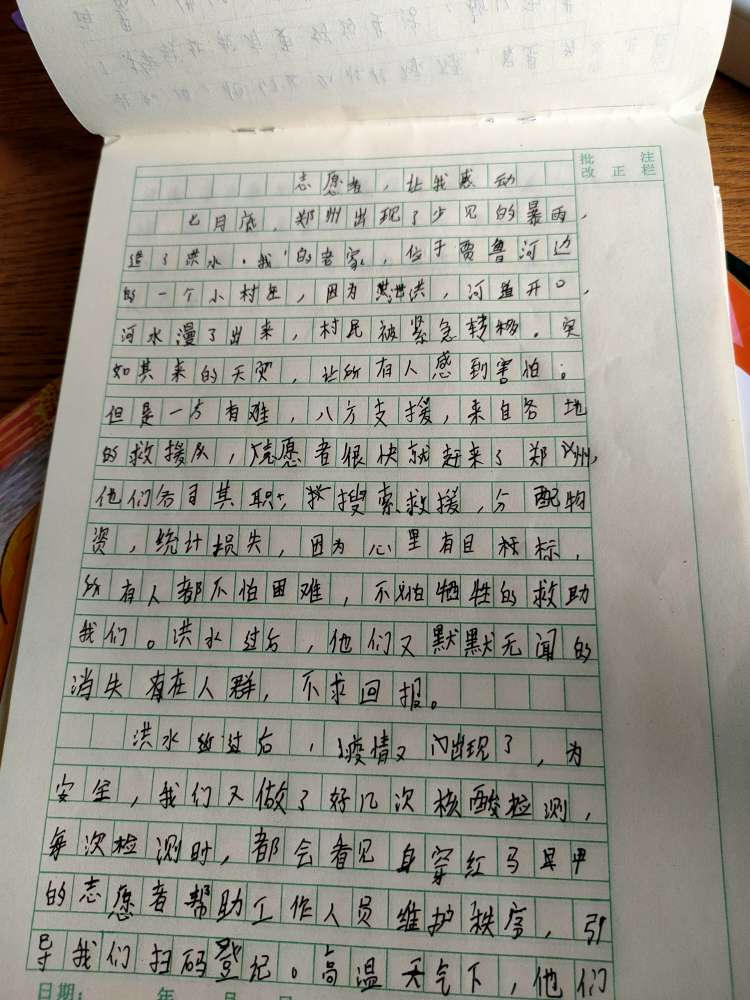 批 注
改 正 栏
志愿者，让我感动
七月底，郑州出现了少见的暴雨，
造了洪水。我的老家，位于贾鲁河边
的一个小村庄，因为泄洪，河道开口，
河水漫了出来，村民被紧急转移。突
如其来的天灾，让所有人感到害怕；
但是一方有难，八方支援，来自各地
的救援队，志愿者很快就赶来了郑州，
他们各司其职，搜索救援，分配物
资，统计损失，因为心里有目标，
所有人都不怕困难，不怕牺牲的救助
我们。洪水过后，他们又默默无闻的
消失在人群，不求回报。
洪水过后，疫情又出现了，为
安全，我们又做了好几次核酸检测，
每次检测时，都会看见身穿红马甲
的志愿者帮助工作人员维护秩序，引
导我们扫码登记。高温天气下，他们
日期： 年 月 日